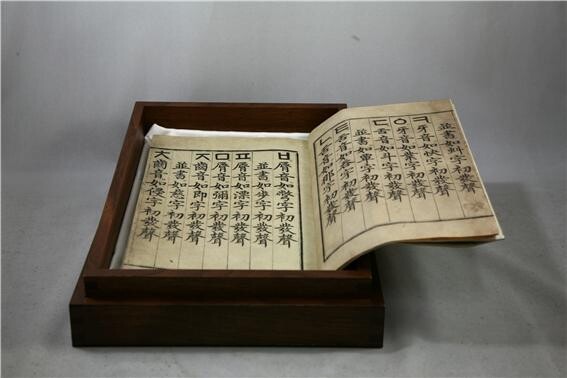 並書如虯字初發聲
ㅋ牙音如快字初發聲
ㆁ牙音如業字初發聲
ㄷ舌音如斗字初發聲
並書如覃字初發聲
ㅌ舌音如呑字初發聲
ㄴ舌音如那字初發聲
ㅂ脣音如彆字初發聲
並書如步字初發聲
ㅍ脣音如漂字初發聲
ㅁ脣音如彌字初發聲
ㅈ齒音如即字初發聲
並書如慈字初發聲
ㅊ齒音如侵字初發聲